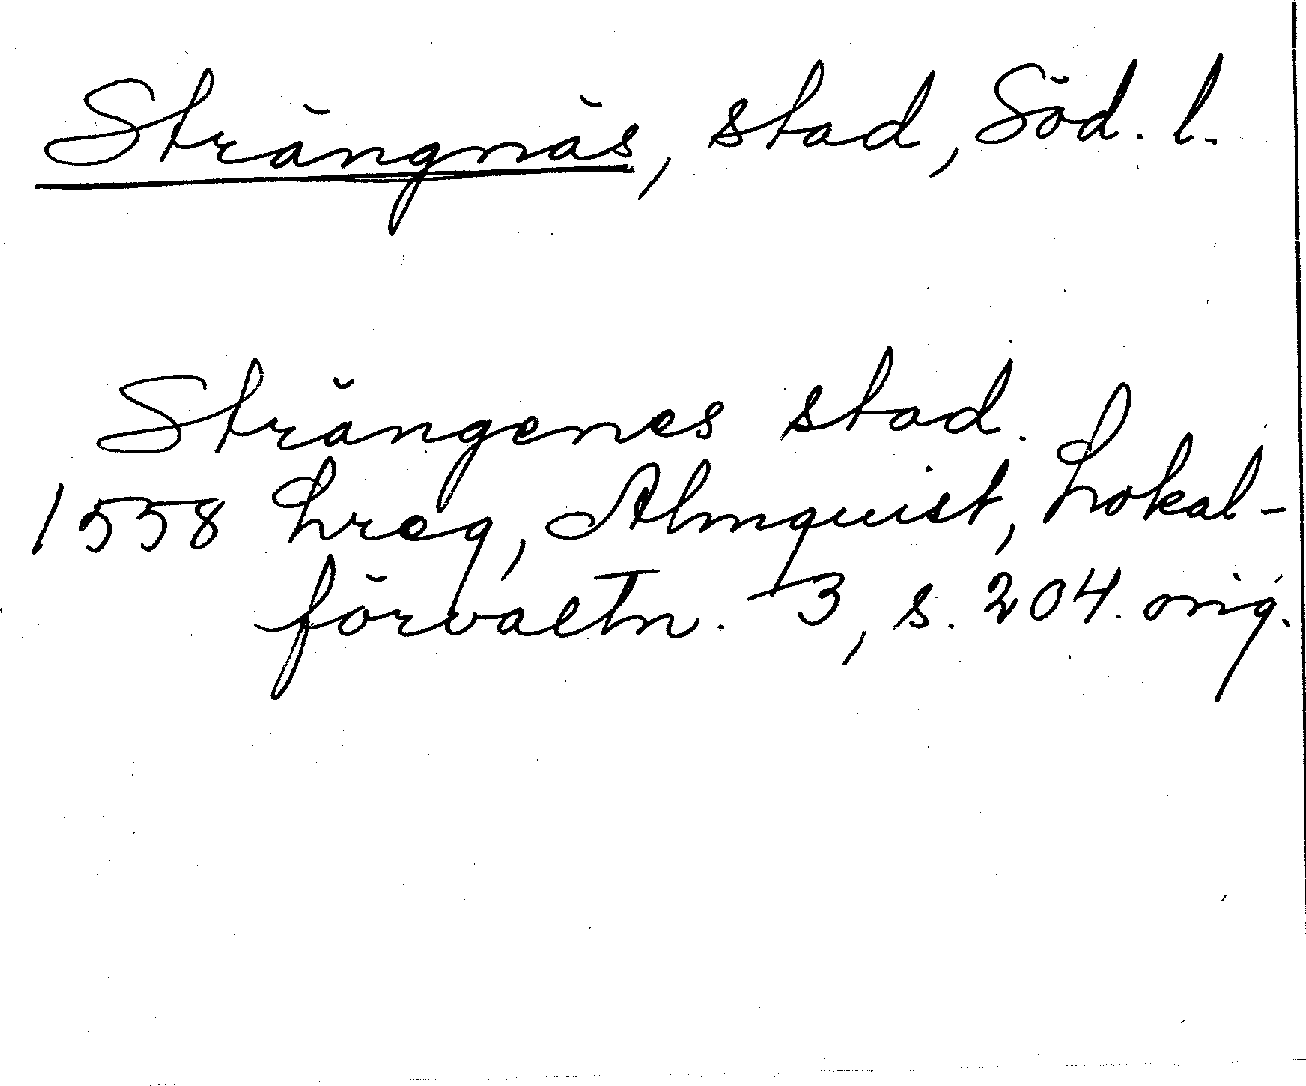 Strängnäs, stad, Söd. l.
Strängenes stad.
1558 Lreg, Almquist, Lokal-
förvaltn. 3, s. 204. orig.